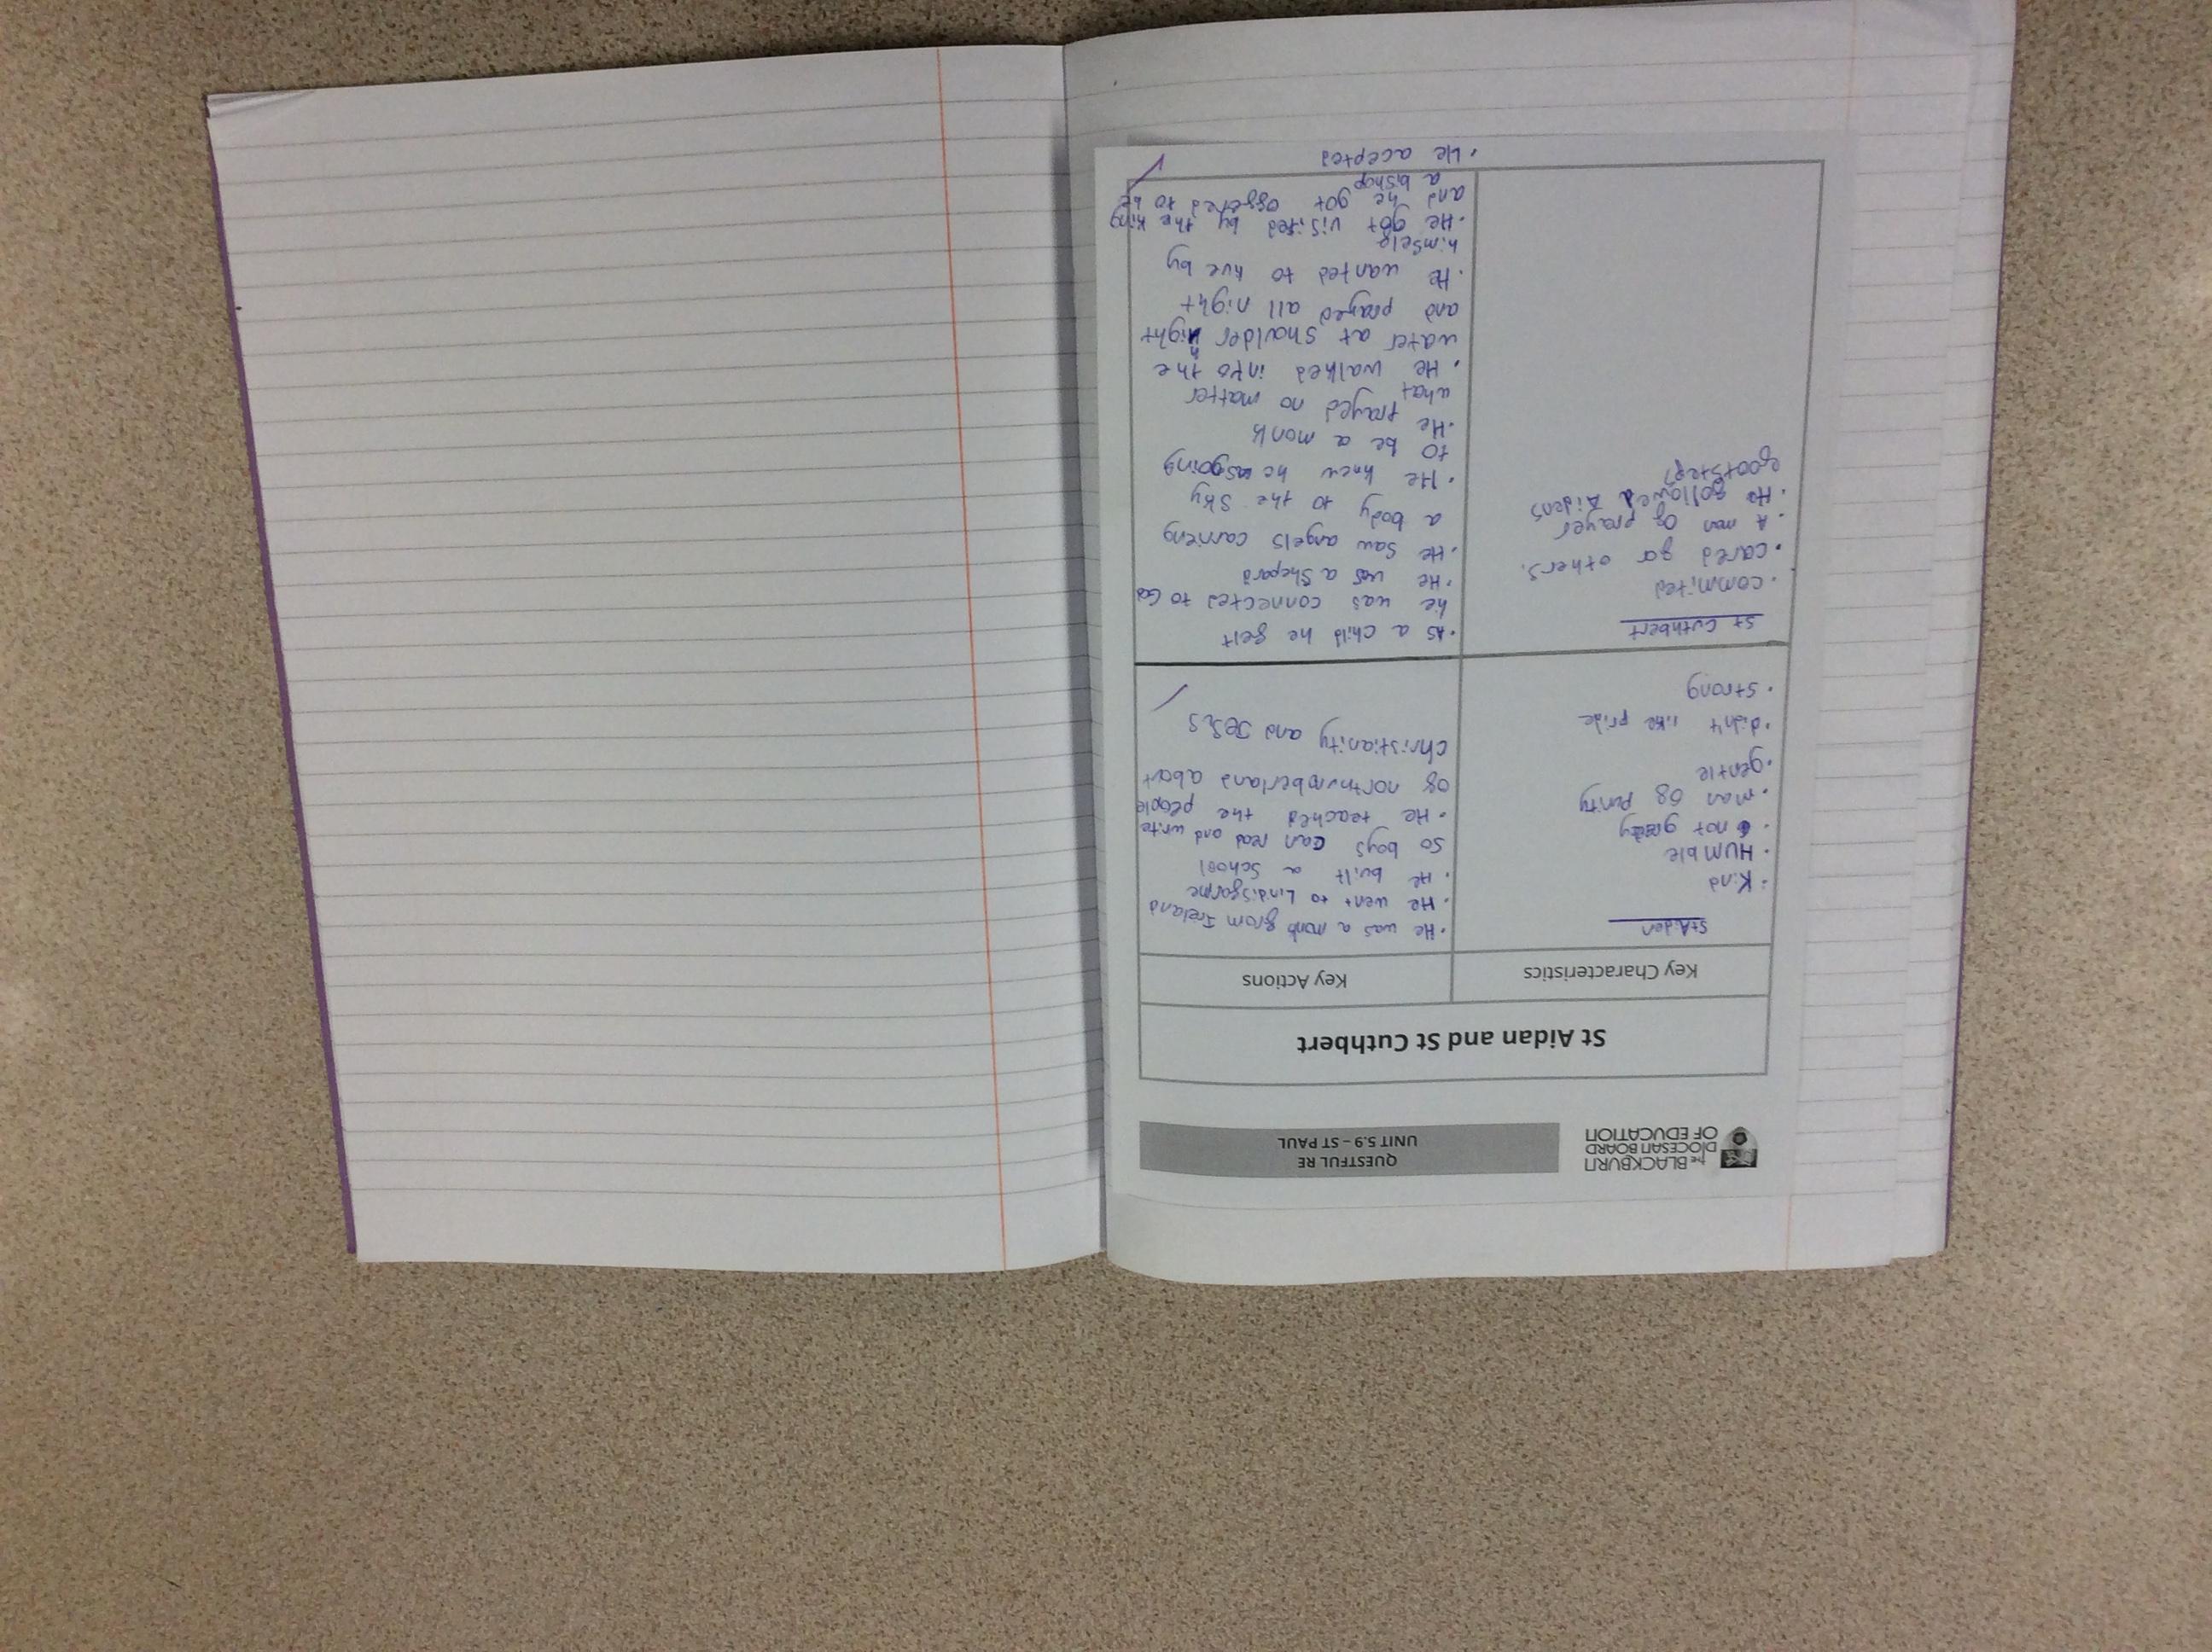 The BLACKBURN
DIOCESAN BOARD
OF EDUCATION
QUESTFUL RE
UNIT 5.9 – ST PAUL
St Aidan and St Cuthbert
Key Characteristics
Key Actions
St Aiden
• Kind
• HUMble
• not greedy
• man of purity
• gentle
• didn't like pride
• strong
• He was a monk from Ireland
• He went to Lindisfarne
• He built a school
so boys can read and write
• He teached the people
of northumberland about
christianity and Jesus
St Cuthbert
• commited
• cared for others.
• A man of prayer
• He followed Aidens
footsteps
• As a child he felt
he was connected to God
• He was a Shepard
• He saw angels carrieng
a body to the sky
• He knew he was going
to be a monk
• He prayed no matter
what
• He walked into the
water at shoulder hight
and prayed all night
• He wanted to live by
himself
• He got visited by the king
and he got offered to be
a bishop
• He accepted